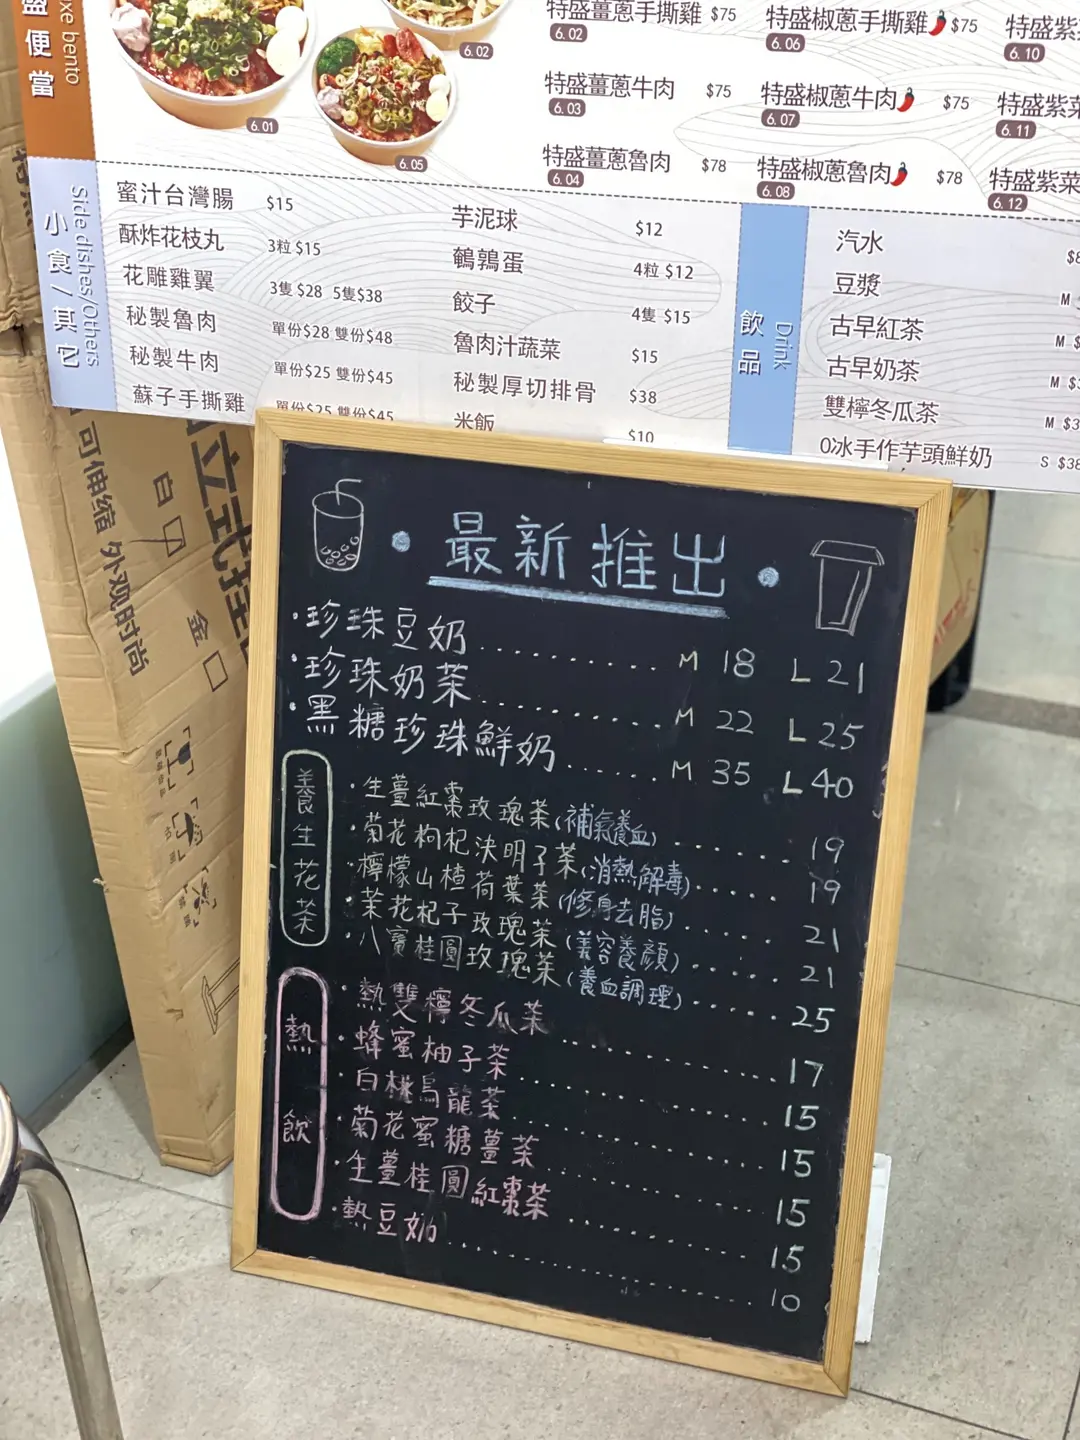 盛便當
xe bento
6.01
6.02
6.05
特盛薑蔥手撕雞 $75
6.02
特盛薑蔥牛肉 $75
6.03
特盛薑蔥魯肉 $78
6.04
特盛椒蔥手撕雞 $75
6.06
特盛椒蔥牛肉 $75
6.07
特盛椒蔥魯肉 $78
6.08
特盛紫
6.10
特盛紫菜
6.11
特盛紫菜
6.12
小食/其它
Side dishes/Others
蜜汁台灣腸 $15
酥炸花枝丸 3粒 $15
花雕雞翼 3隻 $28 5隻$38
秘製魯肉 單份$28 雙份$48
秘製牛肉 單份$25 雙份$45
蘇子手撕雞 單份$25 雙份$45
芋泥球 $12
鵪鶉蛋 4粒 $12
餃子 4隻 $15
魯肉汁蔬菜 $15
秘製厚切排骨 $38
米飯 $10
飲品
Drink
汽水
豆漿 M
古早紅茶 M $
古早奶茶 M
雙檸冬瓜茶 M
0冰手作芋頭鮮奶 S $38
可伸缩 外观时尚
白
金
立式挂
最新推出
·珍珠豆奶.......... M 18 L 21
·珍珠奶茶.......... M 22 L 25
·黑糖珍珠鮮奶...... M 35 L 40
養生花茶
·生薑紅棗玫瑰茶(補氣養血)...... 19
·菊花枸杞決明子茶(消熱解毒)...... 19
·檸檬山楂荷葉茶(修身去脂)...... 21
·茉花杞子玫瑰茶(美容養顏)...... 21
·八寶桂圓玫瑰茶(養血調理)...... 25
熱飲
·熱雙檸冬瓜茶.......... 17
·蜂蜜柚子茶.......... 15
·白桃烏龍茶.......... 15
·菊花蜜糖薑茶.......... 15
·生薑桂圓紅棗茶.......... 15
·熱豆奶.......... 10